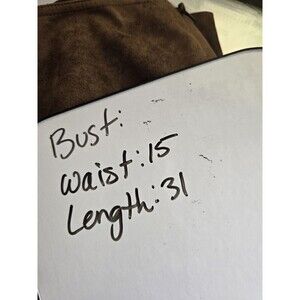 Bust:
Waist:15
Length:31